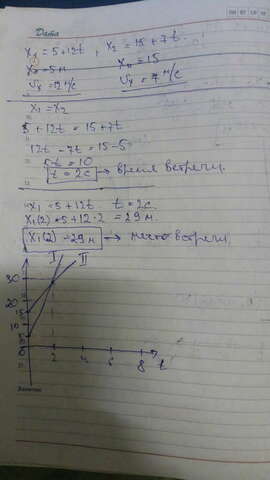 Дата
x₁ = 5+12t , x₂ = 15+7t.
x₀=5м x₀₂=15
υₓ=12 м/с υₓ = 7 м/с
x₁ = x₂
5 + 12t = 15 + 7t
12t - 7t = 15 - 5
5t = 10
t = 2c → время встречи.
x₁ = 5+12t. t = 2c
x₁(2) = 5+12·2 = 29 м.
x₁(2) = 29 м → место встречи
I II
30
20
15
10
5
0 2 4 6 8 t